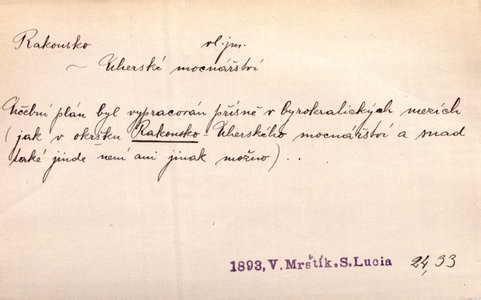 Rakousko vl. jm.
~ Uherské mocnářství
Učební plán byl vypracován přísně v byrokratických mezích
(jak v okrsku Rakousko Uherského mocnářství a snad
také jinde není ani jinak možno) . .
1893, V. Mrštík. S. Lucia 24, 33